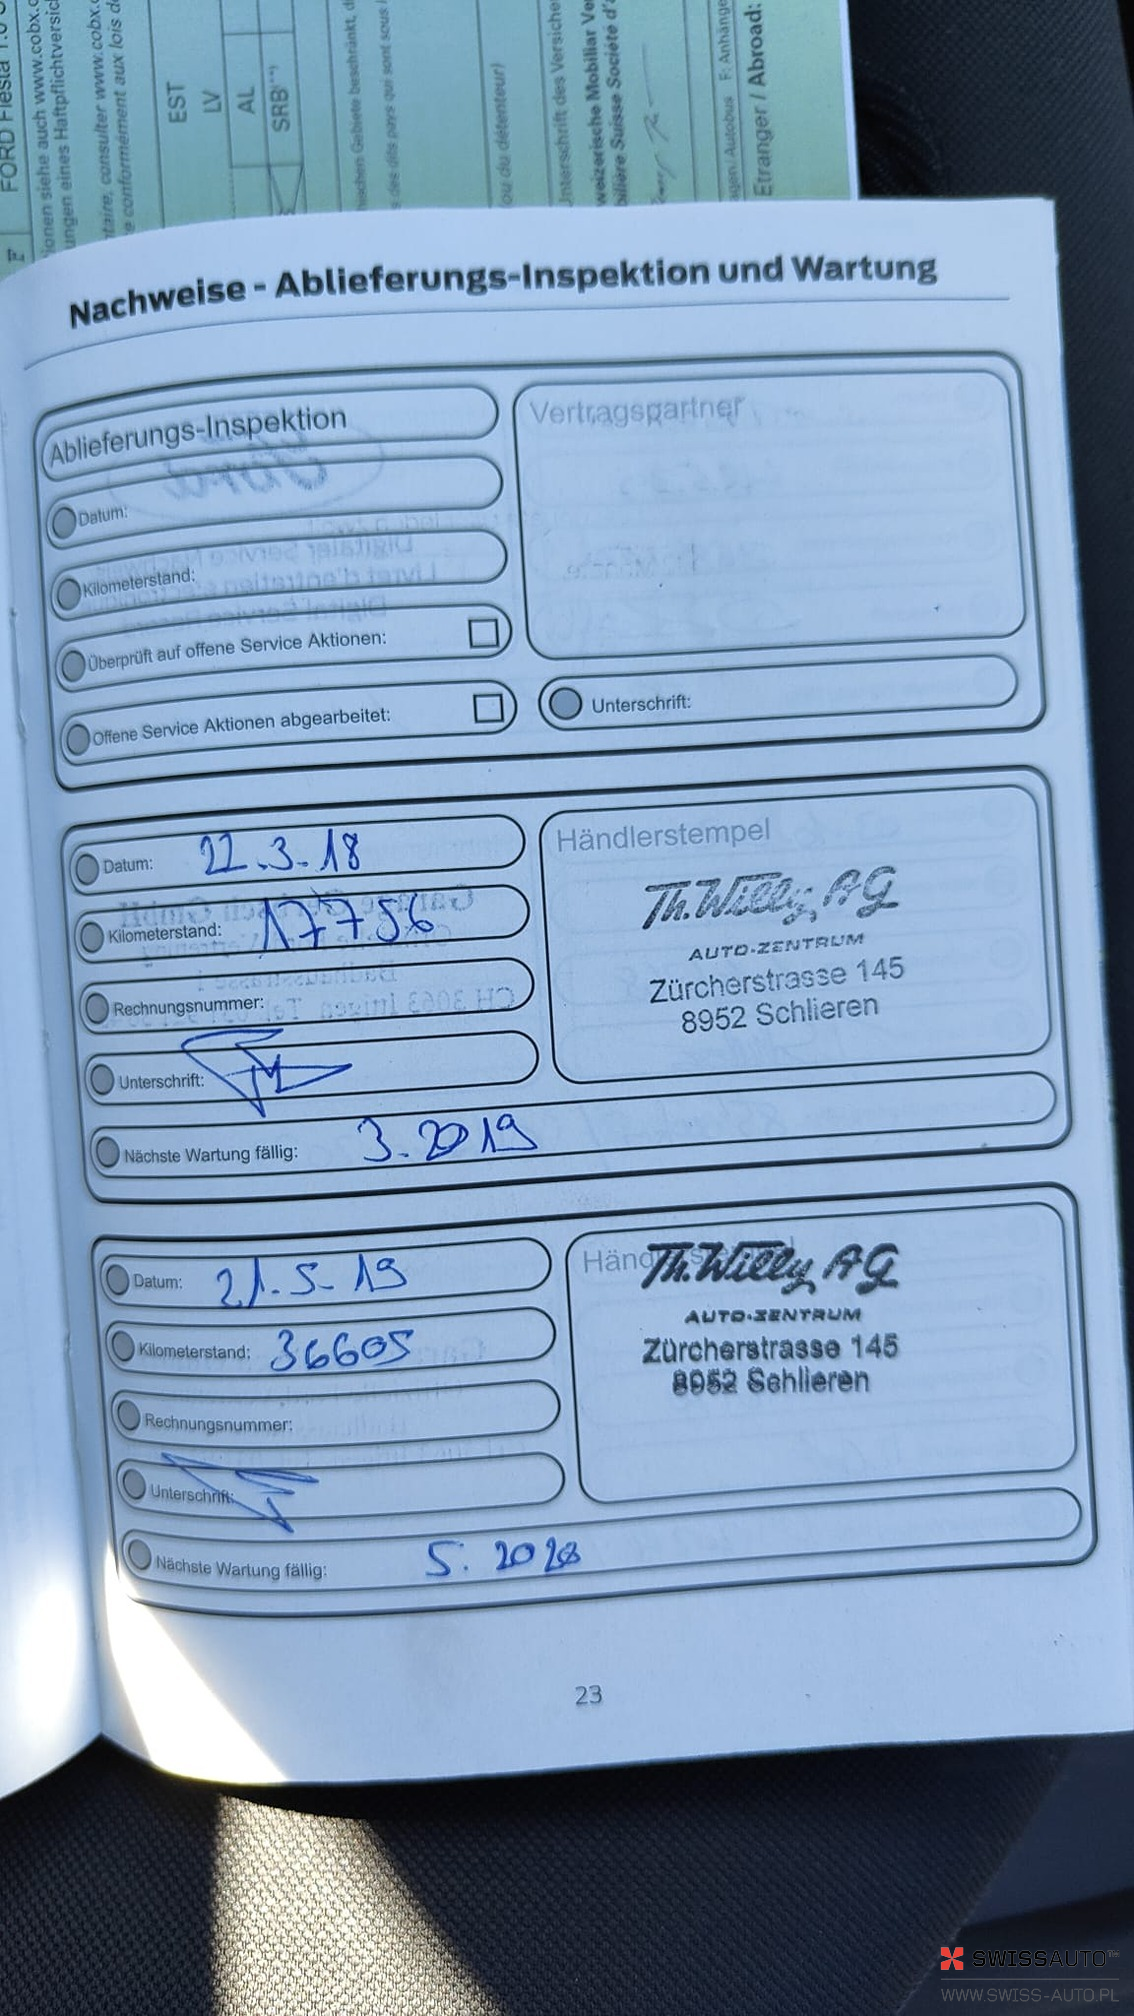 FORD Fiesta 1.0
ionen siehe auch www.cobx.
ungen eines Haftpflichtversic
taire, consulter www.cobx.
e conformément aux lois d
EST
LV
AL
SRB
ischen Gebiete beschränkt, d
s des dits pays qui sont sous
(ou du détenteur)
Unterschrift des Versiche
weizerische Mobiliar Ve
bilière Suisse Société d'
agen/Autobus F: Anhänge
Etranger / Abroad:
Nachweise - Ablieferungs-Inspektion und Wartung
Ablieferungs-Inspektion
Vertragspartner
Datum:
Kilometerstand:
Überprüft auf offene Service Aktionen:
Offene Service Aktionen abgearbeitet:
Unterschrift:
Datum: 22.3.18
Kilometerstand: 17756
Rechnungsnummer:
Unterschrift:
Nächste Wartung fällig: 3.2019
Händlerstempel
Th. Willy AG
AUTO-ZENTRUM
Zürcherstrasse 145
8952 Schlieren
Datum: 21.5-19
Kilometerstand: 36605
Rechnungsnummer:
Unterschrift:
Nächste Wartung fällig: 5.2020
Th. Willy AG
AUTO-ZENTRUM
Zürcherstrasse 145
8952 Schlieren
23
SWISSAUTO™
WWW.SWISS-AUTO.PL